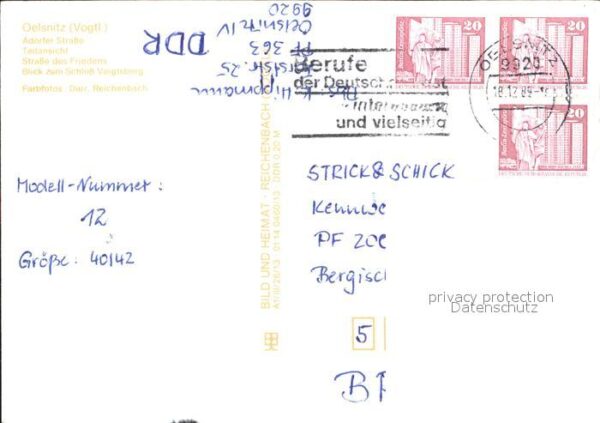 Oelsnitz (Vogtl.)
Adorfer Straße
Teilansicht
Straße des Friedens
Blick zum Schloß Voigtsberg
Farbfotos: Darr, Reichenbach
DDR
9920
Oelsnitz IV
PF 363
str. 25
K. Hippmann
Berufe
der Deutschen Post
interessant
und vielseitig
20
20
20
OELSNITZ
9920
18.12.89
BILD UND HEIMAT · REICHENBACH
DDR 0,20 M
Modell-Nummer:
12
Größe: 40/42
STRICK & SCHICK
Kennwo
PF 200
Bergisch
5
privacy protection
Datenschutz